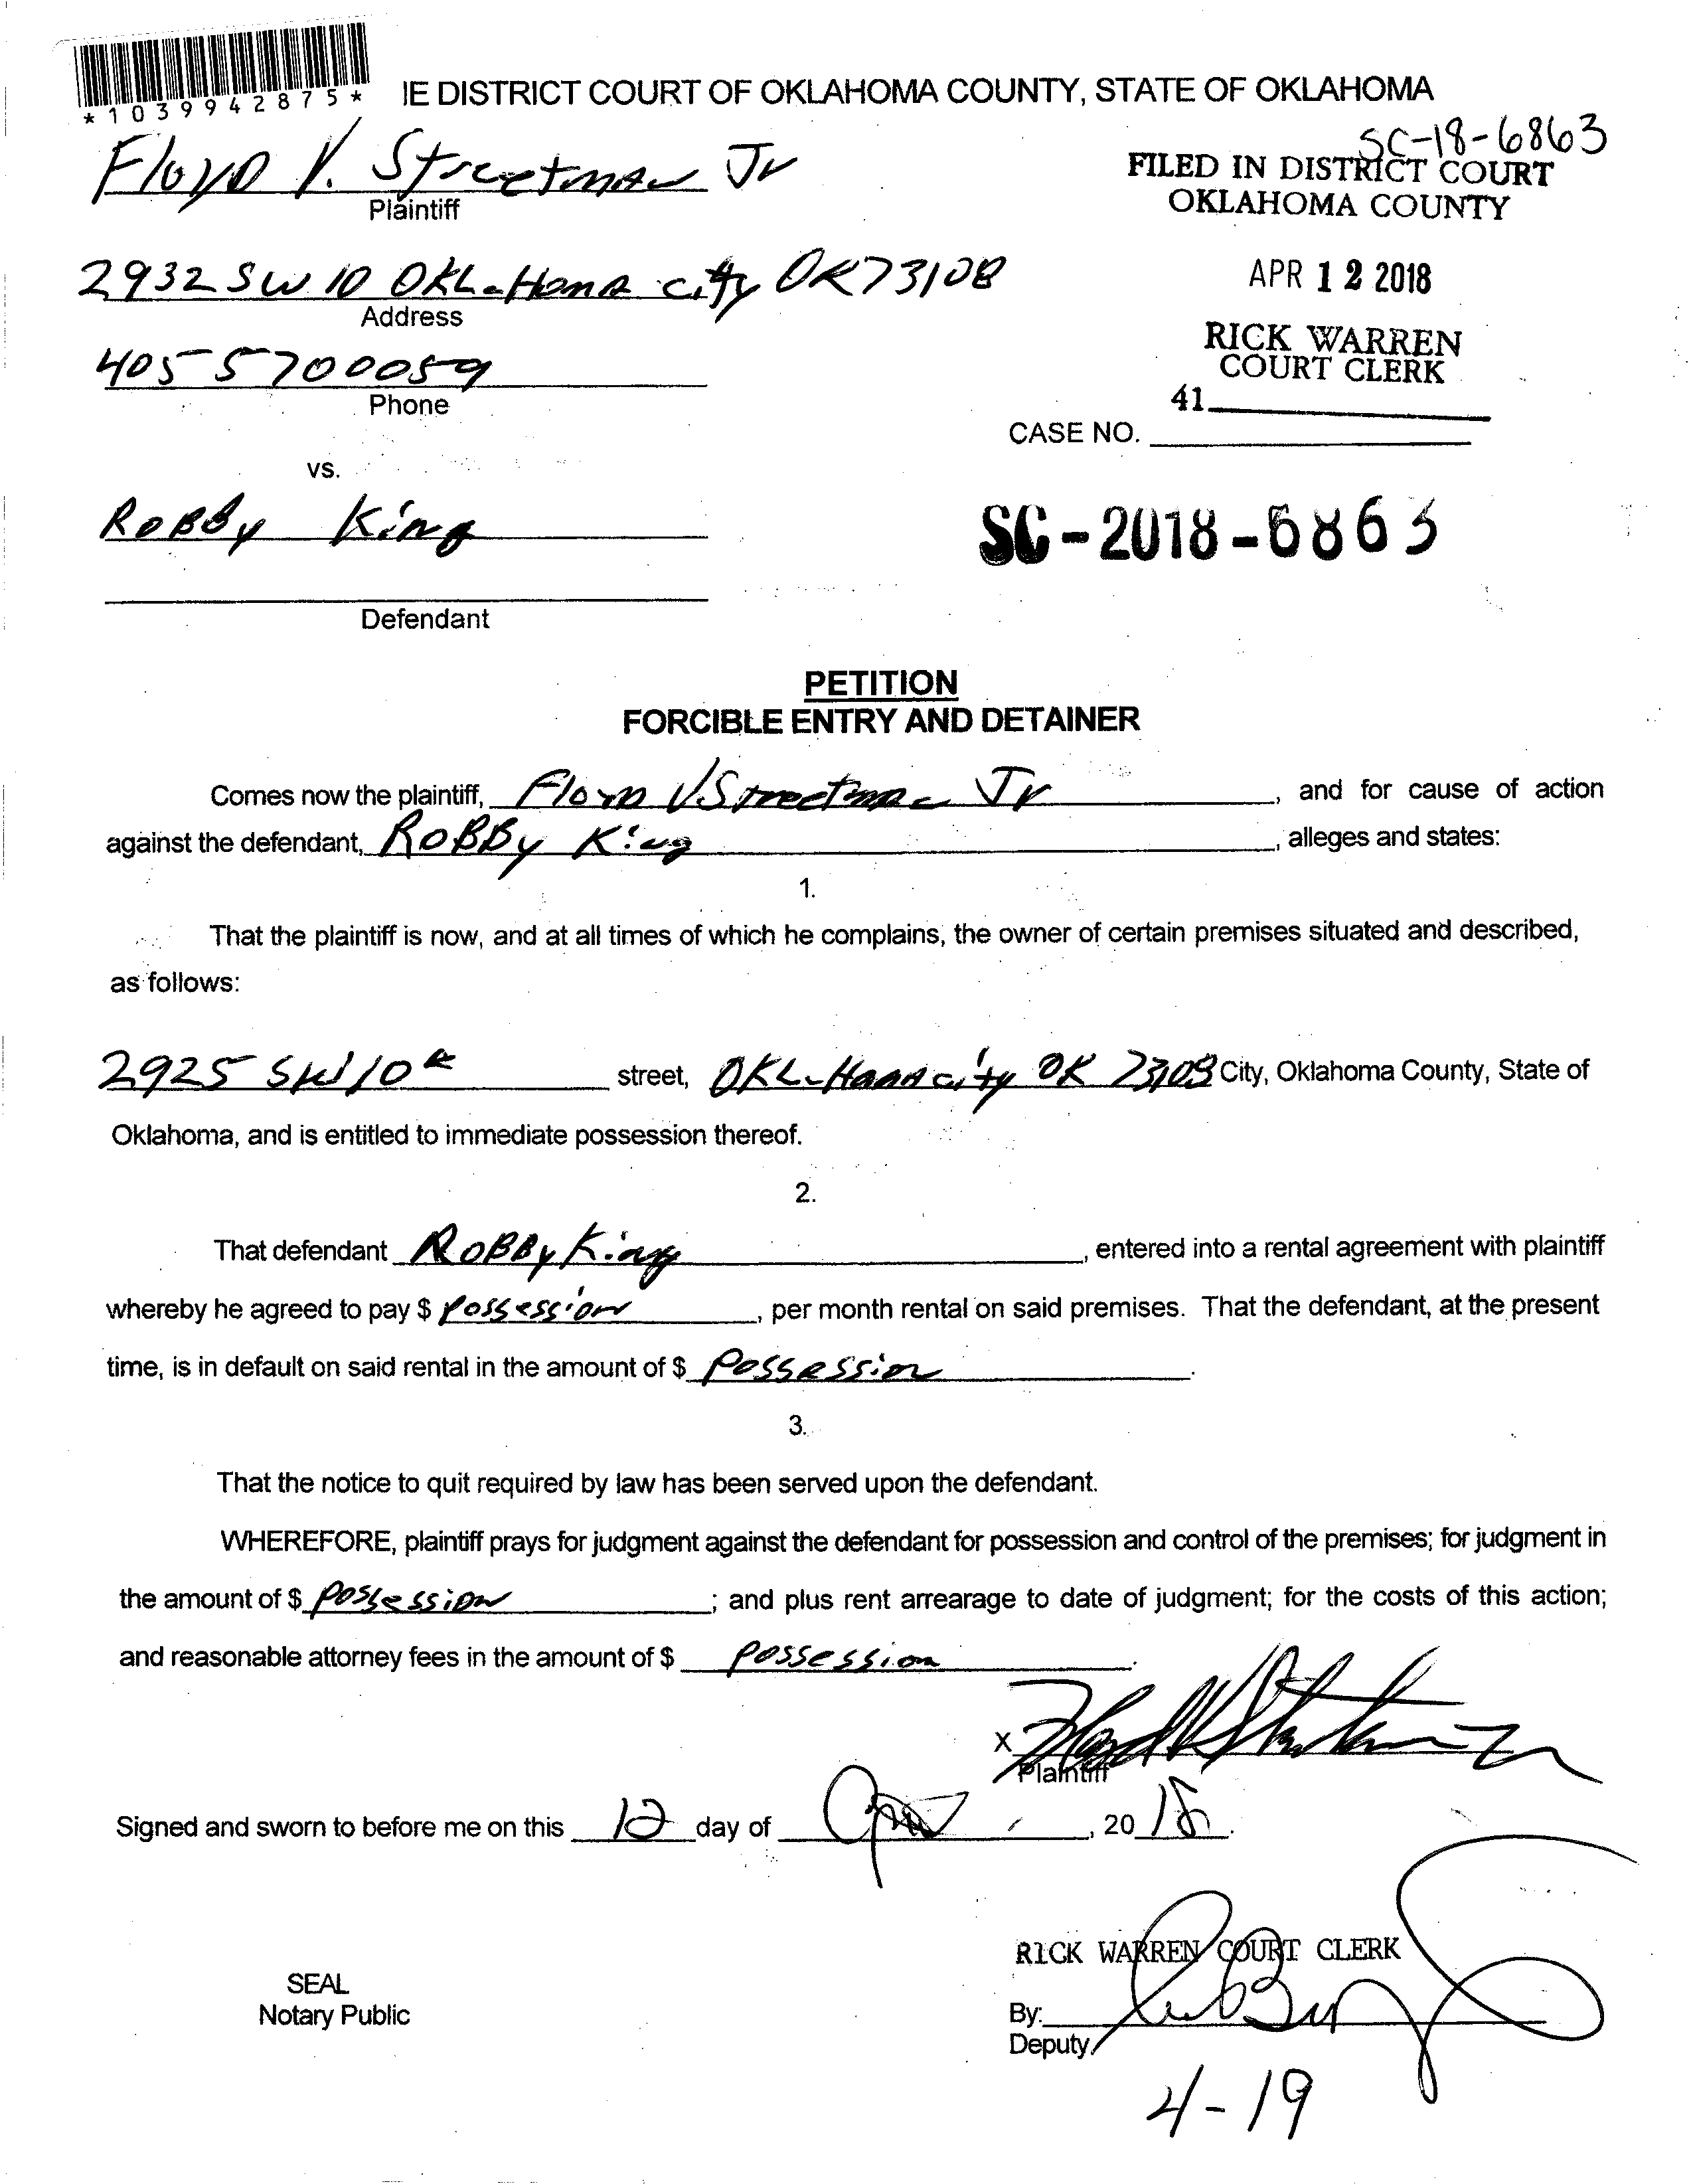 *1039942875*
IE DISTRICT COURT OF OKLAHOMA COUNTY, STATE OF OKLAHOMA
SC-18-6863
Floyd V. Streetman Jr
Plaintiff
FILED IN DISTRICT COURT
OKLAHOMA COUNTY
2932 SW 10 OKLaHomA city OK 73108
Address
APR 12 2018
RICK WARREN
COURT CLERK
405 5700059
Phone
41
CASE NO.
vs.
RoBBy King
SC-2018-6863
Defendant
PETITION
FORCIBLE ENTRY AND DETAINER
Comes now the plaintiff, Floyd V Streetman Jr, and for cause of action
against the defendant, RoBBy King, alleges and states:
1.
That the plaintiff is now, and at all times of which he complains, the owner of certain premises situated and described,
as follows:
2925 SW 10th street, OKLaHomA city OK 73108 City, Oklahoma County, State of
Oklahoma, and is entitled to immediate possession thereof.
2.
That defendant RoBBy King, entered into a rental agreement with plaintiff
whereby he agreed to pay $ Possession, per month rental on said premises. That the defendant, at the present
time, is in default on said rental in the amount of $ Possession.
3.
That the notice to quit required by law has been served upon the defendant.
WHEREFORE, plaintiff prays for judgment against the defendant for possession and control of the premises; for judgment in
the amount of $ Possession; and plus rent arrearage to date of judgment; for the costs of this action;
and reasonable attorney fees in the amount of $ Possession.
X
Plaintiff
Signed and sworn to before me on this 12 day of April, 2018.
RICK WARREN COURT CLERK
SEAL
Notary Public
By:
Deputy
4-19